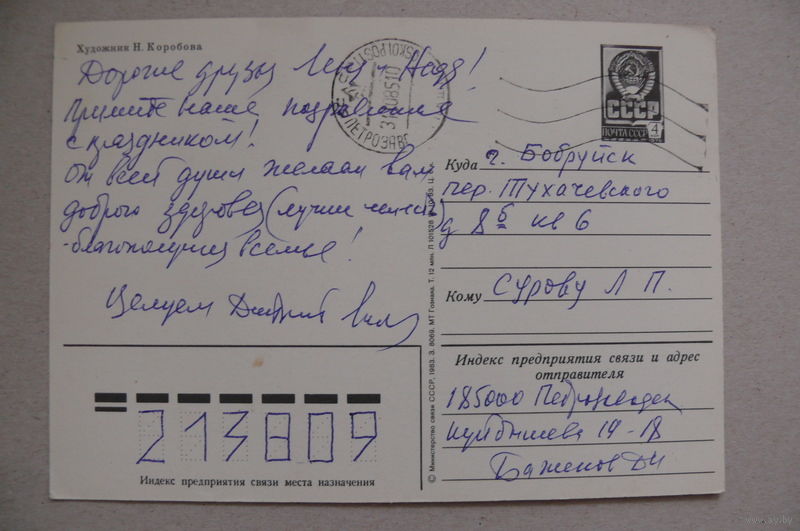 Художник Н. Коробова
Дорогие друзья Леня и Надя!
Примите наше поздравление
с праздником!
От всей души желаем вам
доброго здоровья (лучше
благополучия в семье!
Целуем Дмитрий
СССР
ПОЧТА СССР 4
ПЕТРОЗАВ
Куда г. Бобруйск
пер. Тухачевского
д 8б кв 6
Кому Сурову Л П.
Индекс предприятия связи и адрес
отправителя
185000 Петрозаводск
Куйбышева 14-18
Баженов ДИ
213809
Индекс предприятия связи места назначения
© Министерство связи СССР, 1983. З. 8069. МТ Гознака. Т. 12 млн.
www.ay.by